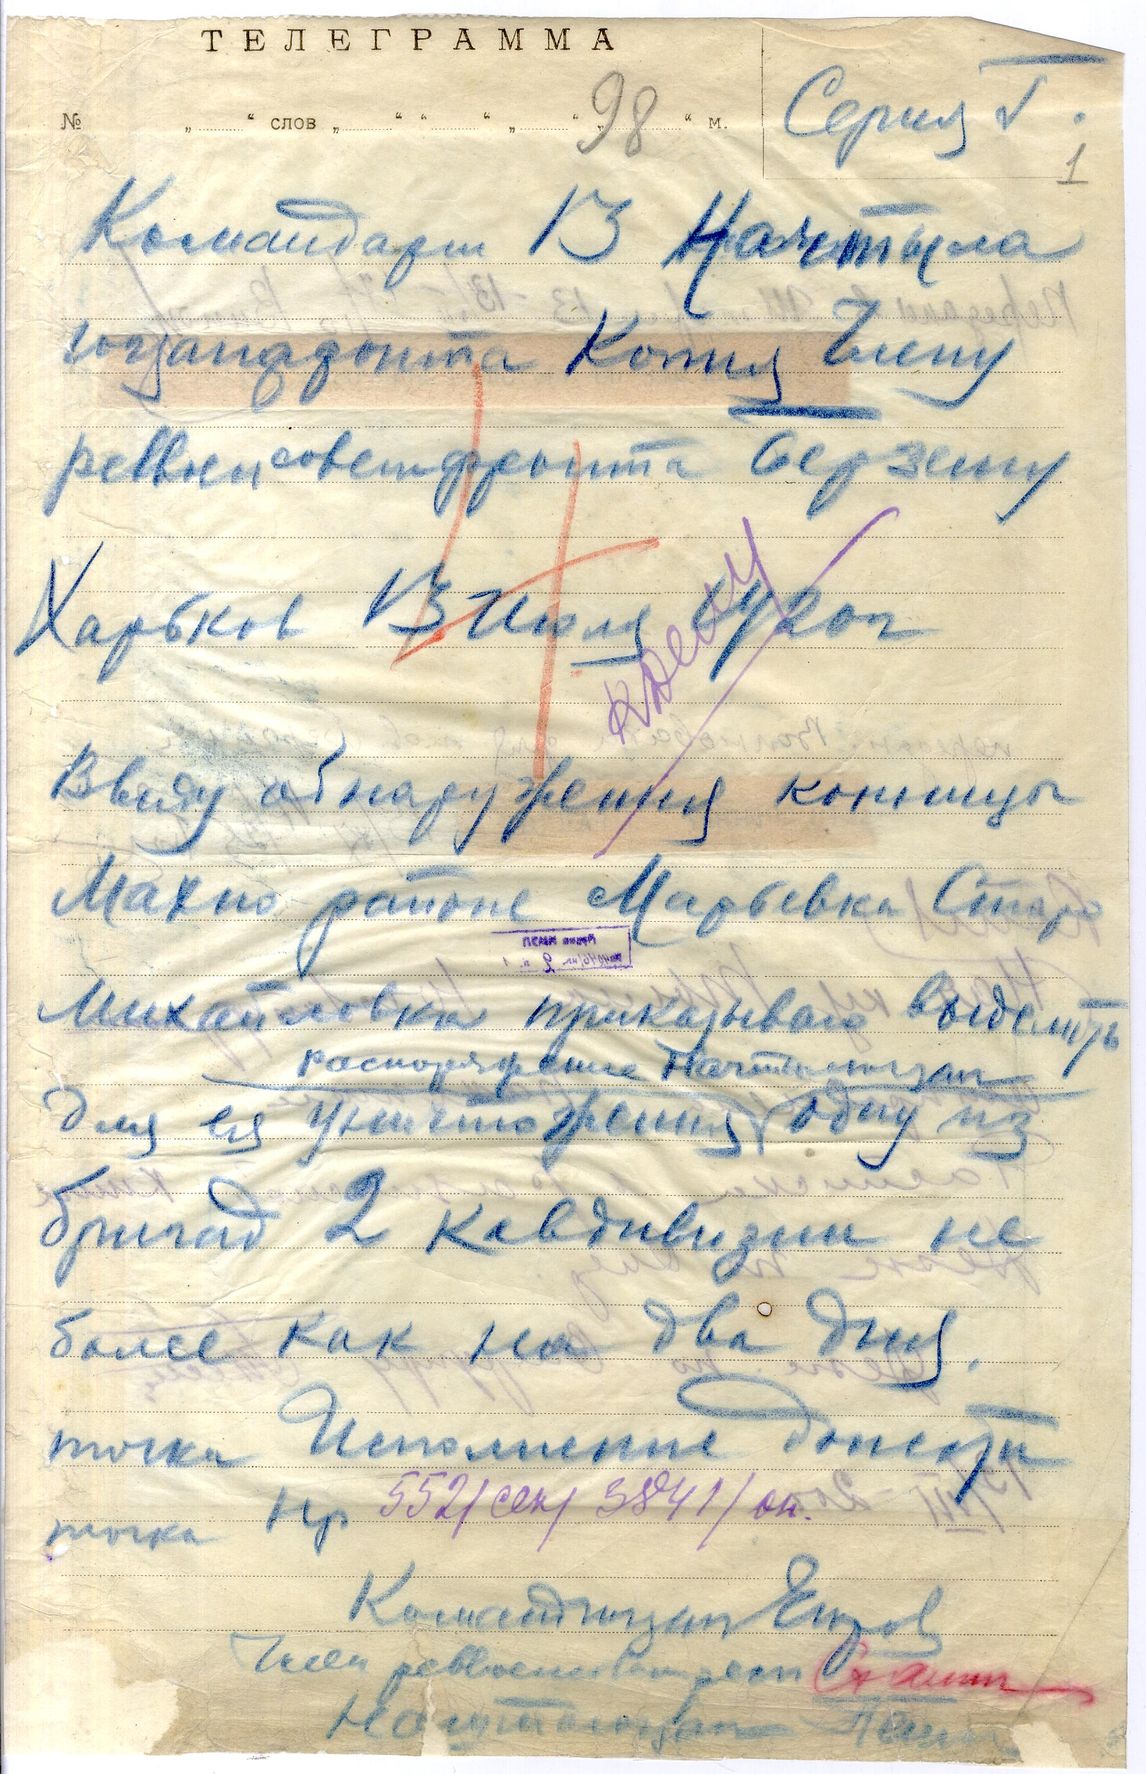 ТЕЛЕГРАММА
№ „ “ слов „ “ “ “ „ “ „ “ м.
98
Серия Г.
1
Командарм 13 Начтыла
югзапфронта Копия Члену
реввоенсоветфронта Берзину
Харьков 13 июля 20г
Ввиду обнаружения конницы
Махно районе Марьевка Старо
Михайловка приказываю выделить
распоряжение Начтылюгзап
для ея уничтожения одну из
бригад 2 кавдивизии не
более как на два дня.
точка Исполнение донести
точка Нр 552/сек/ 3841/оп.
Командюгзап Егоров
Член реввоенсовета Сталин